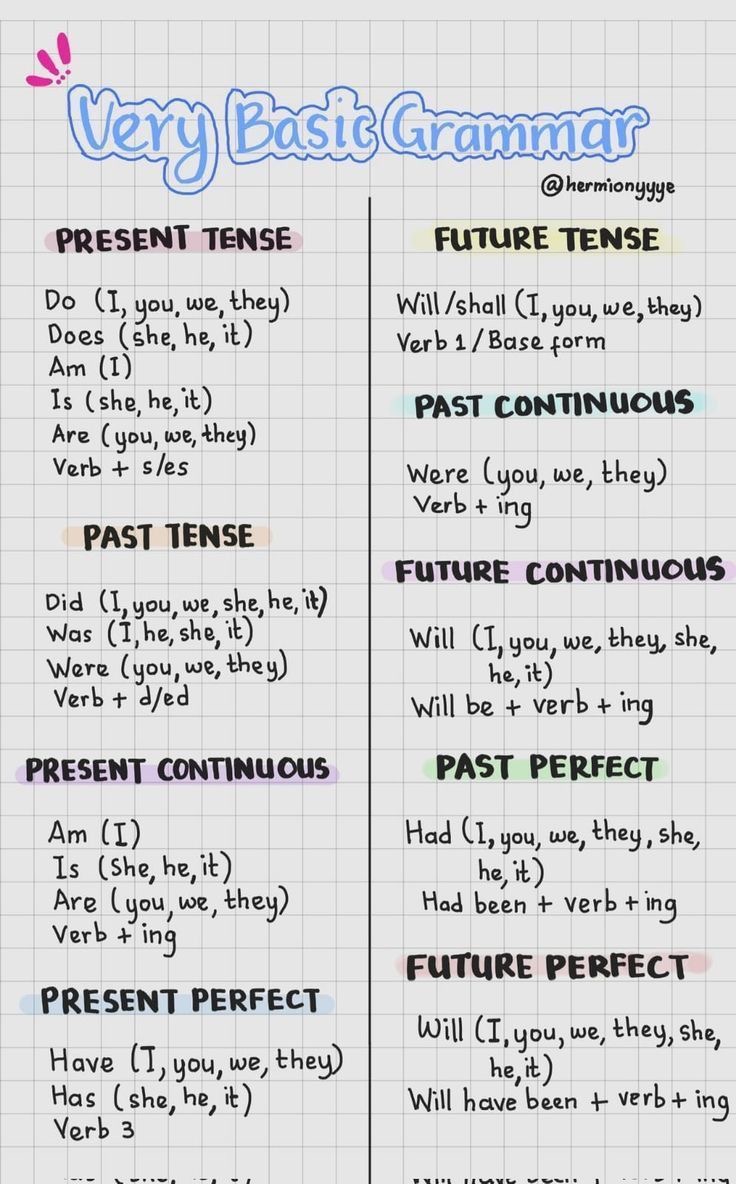 Very Basic Grammar
@hermionyyye
PRESENT TENSE
Do (I, you, we, they)
Does (she, he, it)
Am (I)
Is (she, he, it)
Are (you, we, they)
Verb + s/es
PAST TENSE
Did (I, you, we, she, he, it)
Was (I, he, she, it)
Were (you, we, they)
Verb + d/ed
PRESENT CONTINUOUS
Am (I)
Is (She, he, it)
Are (you, we, they)
Verb + ing
PRESENT PERFECT
Have (I, you, we, they)
Has (she, he, it)
Verb 3
FUTURE TENSE
Will/shall (I, you, we, they)
Verb 1/Base form
PAST CONTINUOUS
Were (you, we, they)
Verb + ing
FUTURE CONTINUOUS
Will (I, you, we, they, she,
he, it)
Will be + verb + ing
PAST PERFECT
Had (I, you, we, they, she,
he, it)
Had been + verb + ing
FUTURE PERFECT
Will (I, you, we, they, she,
he, it)
Will have been + verb + ing